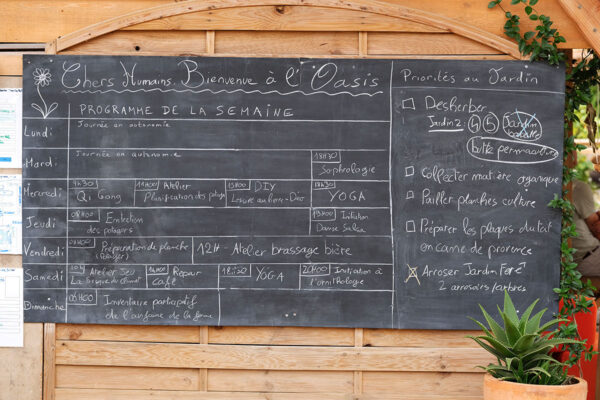 Chers Humains, Bienvenue à l'Oasis
PROGRAMME DE LA SEMAINE
Lundi
Journée en autonomie
Mardi
Journée en autonomie
18H30
Sophrologie
Mercredi
Qi Gong
11H00 Atelier
Planification des
DIY
YOGA
Jeudi
Entretien
des potagers
Initiation
Danse Salsa
Vendredi
Préparation de planche
12H - Atelier brassage bière
Samedi
Atelier Jeu
La Fresque du Climat
Repair
Café
18H30
YOGA
20H00
Initiation à
l'ornithologie
Dimanche
05H00
Inventaire participatif
de l'avifaune de la ferme
Priorités au Jardin
Désherber
Jardin 2
4
5
Jardin
butte permaculture
Collecter matière organique
Pailler planches culture
Préparer les plaques du toit
en canne de provence
Arroser Jardin Forê
2 arrosoirs/arbres